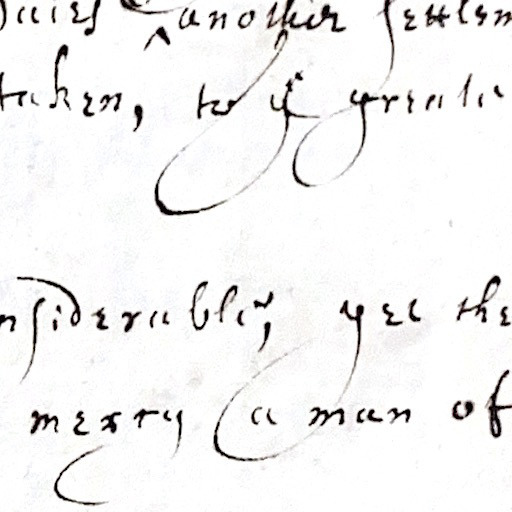 another settlem
taken, to yͤ greate
nsiderable, yet the
merry a man of